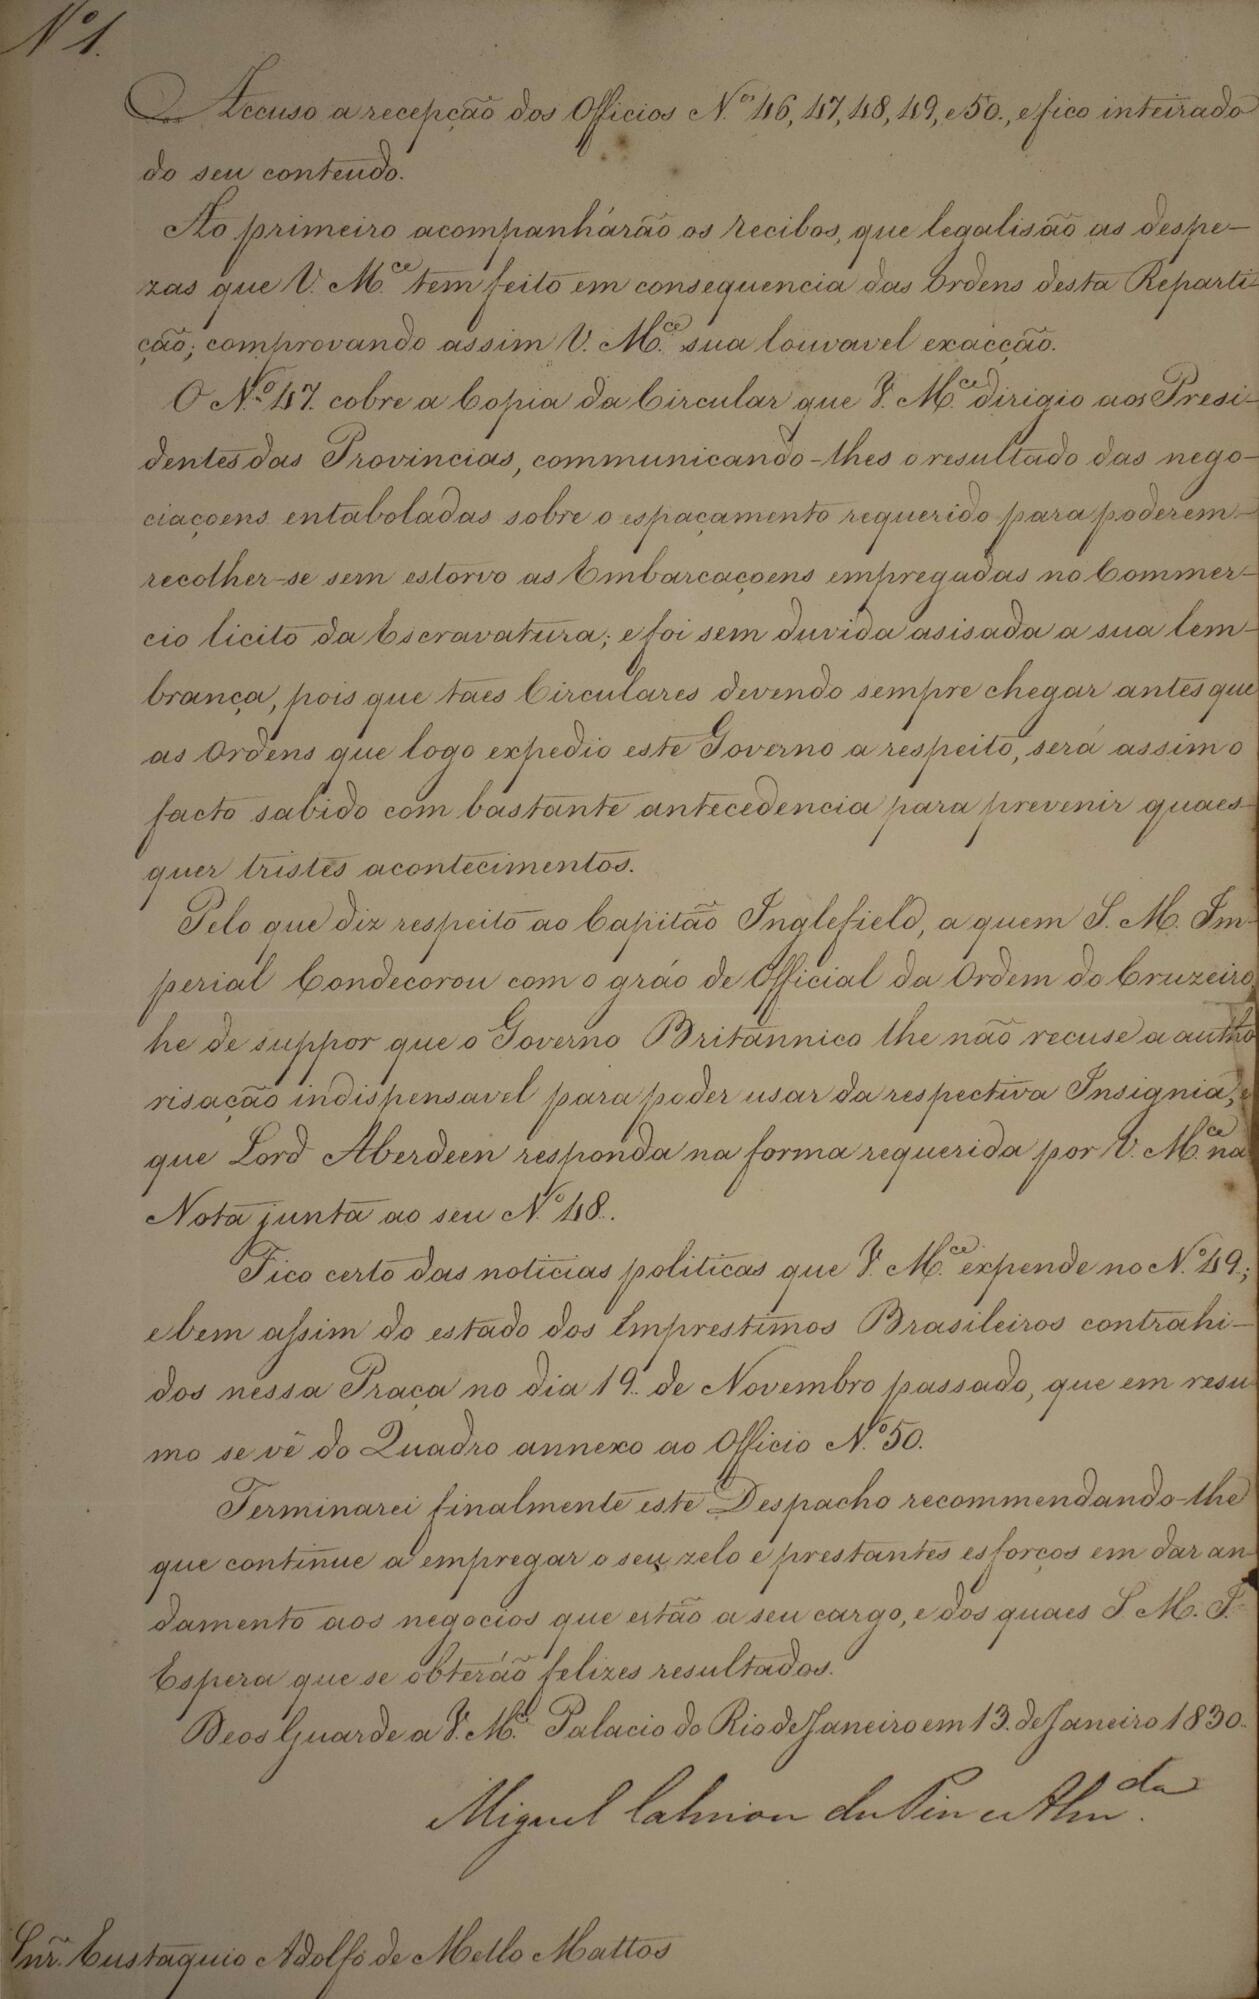 Nº 1.
Accuso a recepção dos Officios N.os 46, 47, 48, 49, e 50., e fico inteirado
do seu conteudo.
Ao primeiro acompanhárão os recibos, que legalisão as despe-
zas que V. M.ce tem feito em consequencia das Ordens desta Reparti-
ção; comprovando assim V. M.ce sua louvavel exacção.
O N.º 47. cobre a Copia da Circular que V. M.ce dirigio aos Presi-
dentes das Provincias, communicando-lhes o resultado das nego-
ciaçoens entaboladas sobre o espaçamento requerido para poderem-
recolher-se sem estorvo as Embarcaçoens empregadas no Commer-
cio licito da Escravatura; e foi sem duvida asisada a sua lem-
brança, pois que taes Circulares devendo sempre chegar antes que
as Ordens que logo expedio este Governo a respeito, será assim o
facto sabido com bastante antecedencia para prevenir quaes-
quer tristes acontecimentos.
Pelo que diz respeito ao Capitão Inglefield, a quem S. M. Im-
perial Condecorou com o gráo de Official da Ordem do Cruzeiro,
he de suppor que o Governo Britannico lhe não recuse a autho
risação indispensavel para poder usar da respectiva Insignia, e
que Lord Aberdeen responda na forma requerida por V. M.ce na
Nota junta ao seu N.º 48.
Fico certo das noticias politicas que V. M.ce expende no N.º 49.;
e bem assim do estado dos Emprestimos Brasileiros contrahi-
dos nessa Praça no dia 19. de Novembro passado, que em resu
mo se vê do Quadro annexo ao Officio N.º 50.
Terminarei finalmente este Despacho recommendando-lhe
que continue a empregar o seu zelo e prestantes esforços em dar an-
damento aos negocios que estão a seu cargo, e dos quaes S. M. I.
Espera que se obterão felizes resultados.
Deos Guarde a V. M.ce Palacio do Rio de Janeiro em 13. de Janeiro 1830.
Miguel Calmon du Pin e Alm.da
Snr. Eustaquio Adolfo de Mello Mattos